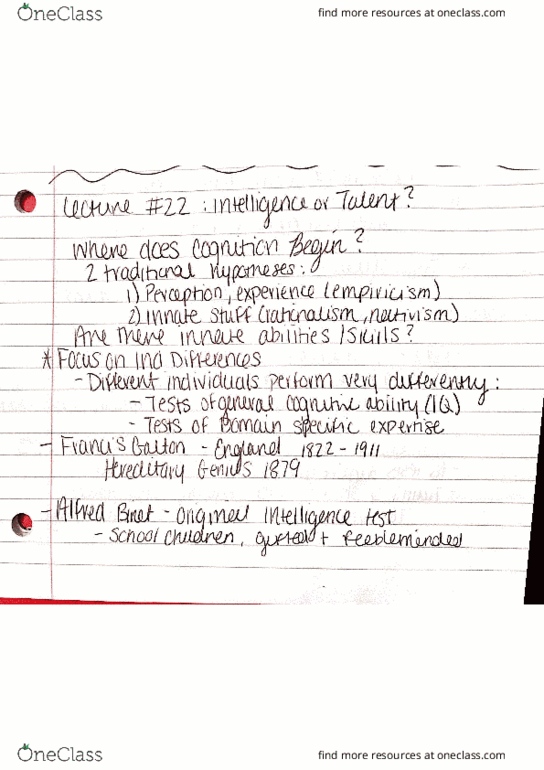 OneClass
find more resources at oneclass.com
Lecture #22 : Intelligence or Talent?
Where does Cognition Begin?
2 traditional hypotheses:
1) Perception, experience (empiricism)
2) Innate stuff (rationalism, nativism)
Are there innate abilities / skills?
* Focus on Ind Differences
- Different individuals perform very differently:
- Tests of general cognitive ability (IQ)
- Tests of Domain specific expertise
- Francis Galton - England 1822 - 1911
Hereditary Genius 1879
- Alfred Binet - original intelligence test
- School children, gifted + feebleminded
OneClass
find more resources at oneclass.com